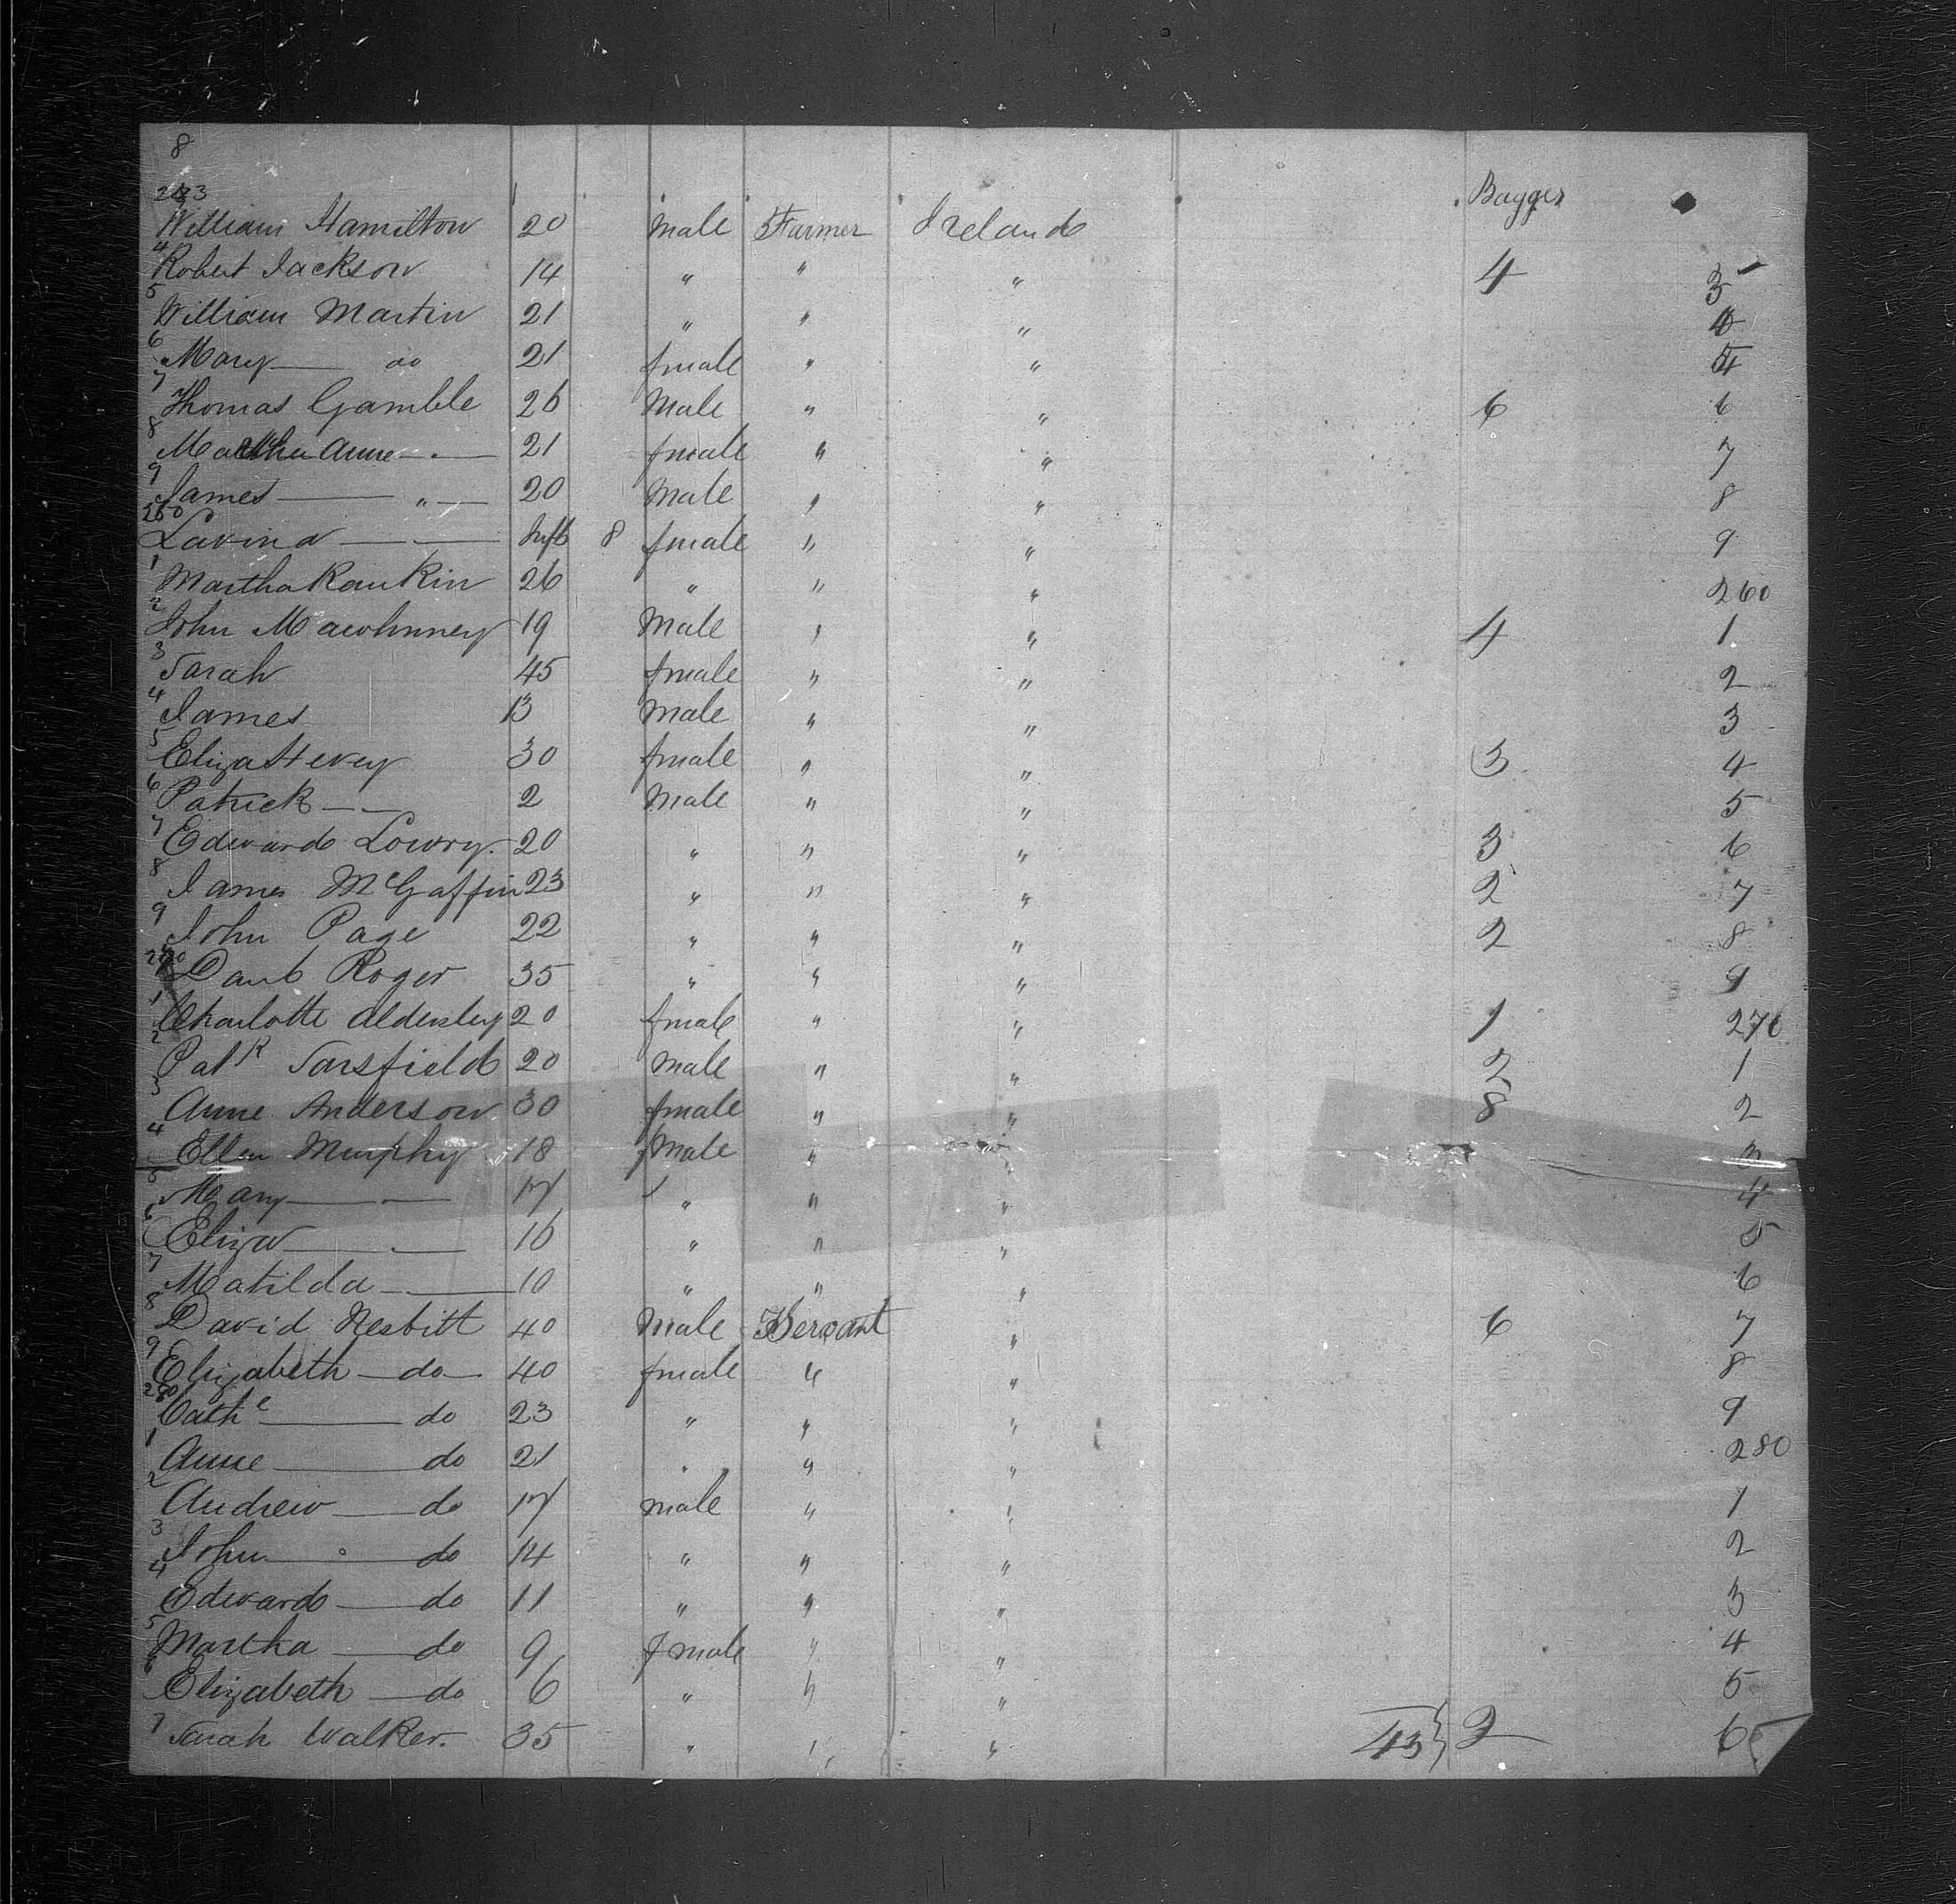 8
Bagges
253 William Hamilton 20 male Farmer Ireland
4 Robert Jackson 14 " " " 4 3
5 William Martin 21 " " " 4
6 Mary — do 21 female " " 5
7 Thomas Gamble 26 Male " " 6 6
8 Martha Anne — 21 female " " 7
9 James — " — 20 Male " " 8
260 Lavina — — Inft 8 female " " 9
1 Martha Rankin 26 " " " 260
2 John Mawhinney 19 Male " " 4 1
3 Sarah 45 female " " 2
4 James 13 Male " " 3
5 Eliza Hevey 30 female " " 3 4
6 Patrick — — 2 Male " " 5
7 Edward Lowry. 20 " " " 3 6
8 James McGaffin 23 " " " 2 7
9 John Page 22 " " " 2 8
270 Danl Roger 35 " " " 9
1 Charlotte Aldersley 20 female " " 1 270
2 Patk Sarsfield 20 male " " 2 1
3 Anne Anderson 30 female " " 8 2
4 Ellen Murphy 18 female " " 3
5 Mary — — 17 " " " 4
6 Eliza — — 16 " " " 5
7 Matilda — — 10 " " " 6
8 David Nesbitt 40 Male Servant " 6 7
9 Elizabeth — do — 40 female " " 8
280 Cathe — do 23 " " " 9
1 Anne — do 21 " " " 280
2 Andrew — do 17 male " " 1
3 John — do 14 " " " 2
4 Edward — do 11 " " " 3
5 Martha — do 9 female " " 4
6 Elizabeth — do 6 " " " 5
7 Sarah Walker. 35 " " " 43} 2 6